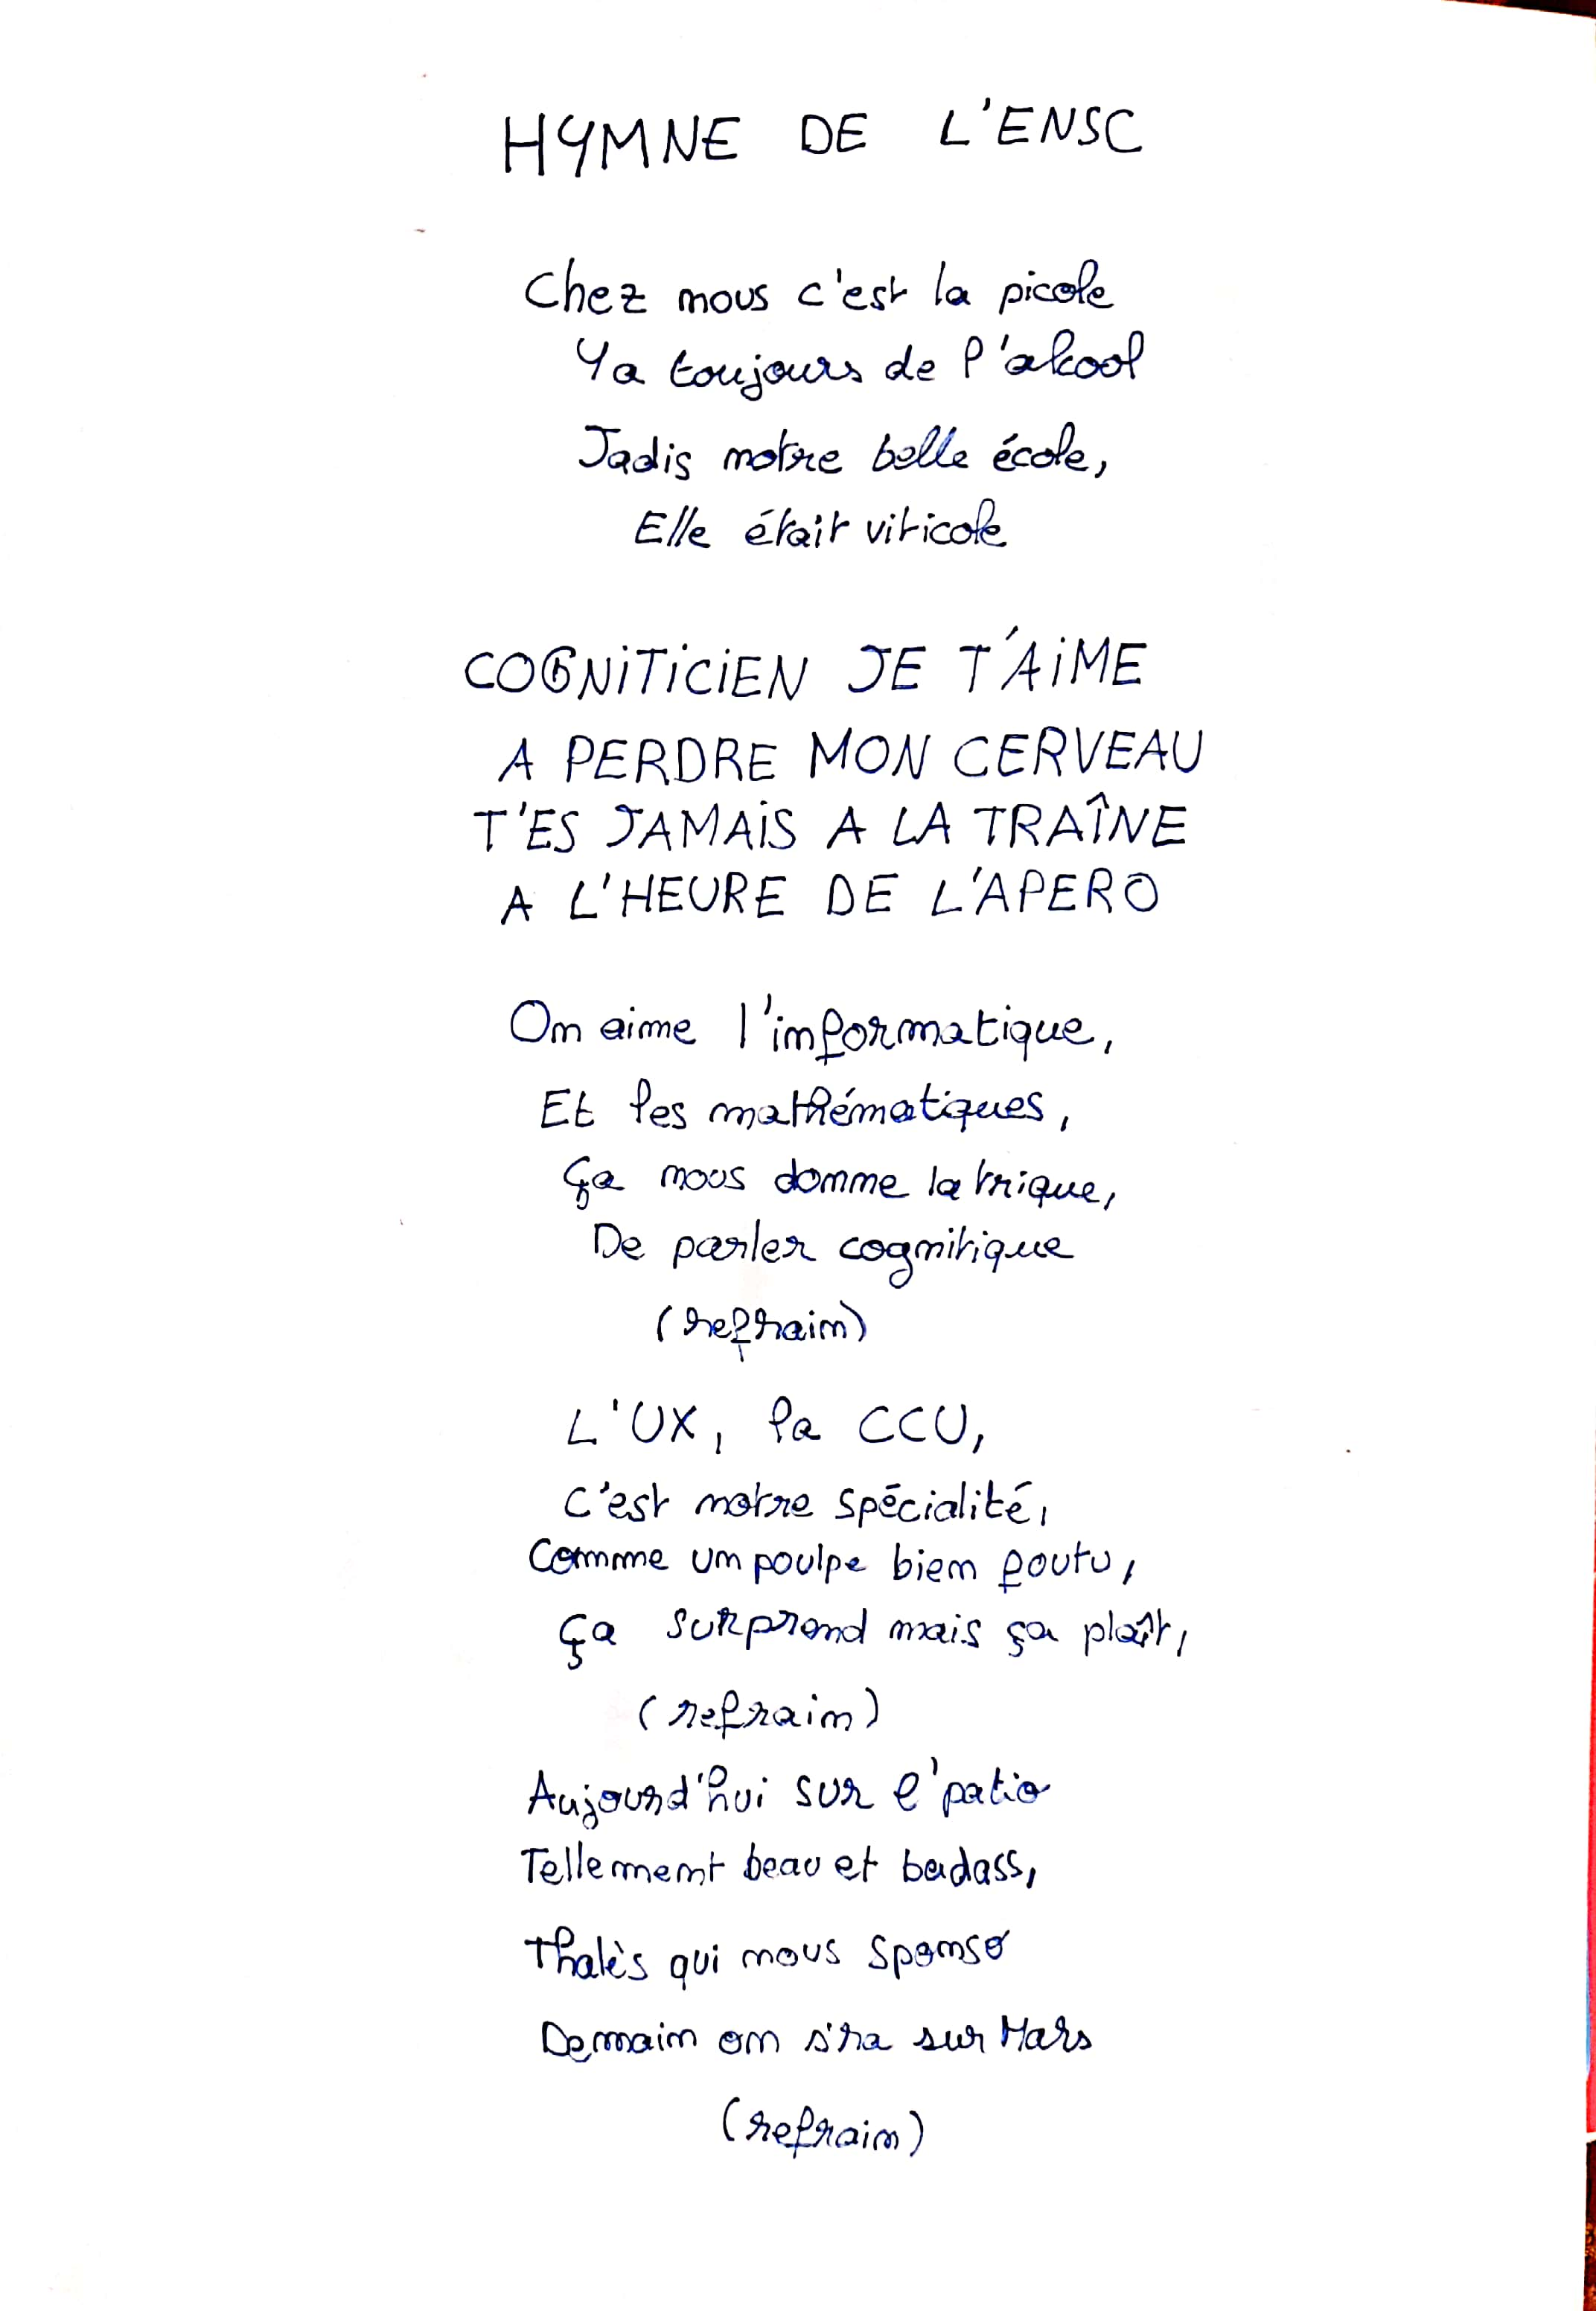 HYMNE DE L'ENSC
Chez nous c'est la picole
Ya toujours de l'alcool
Jadis notre belle école,
Elle était viticole
COGNITICIEN JE T'AIME
A PERDRE MON CERVEAU
T'ES JAMAIS A LA TRAÎNE
A L'HEURE DE L'APERO
On aime l'informatique,
Et les mathématiques,
Ça nous donne la trique,
De parler cognitique
(refrain)
L'UX, la CCU,
C'est notre spécialité,
Comme un poulpe bien foutu,
Ça surprend mais ça plaît,
(refrain)
Aujourd'hui sur l'patio
Tellement beau et badass,
Thalès qui nous sponso
Demain on s'ra sur Mars
(refrain)